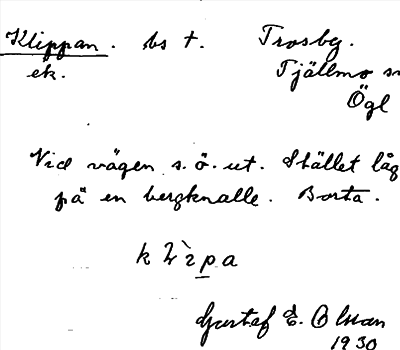 Klippan. bs t. Trosbg.
ek. Tjällmo sn
Ögl
Vid vägen s. ö. ut. Stället låg
på en bergknalle. Borta.
Gustaf E. Olsson
1930